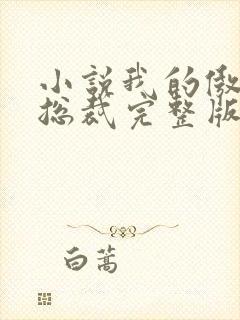 小說我的傲
总裁完整版
白蒿